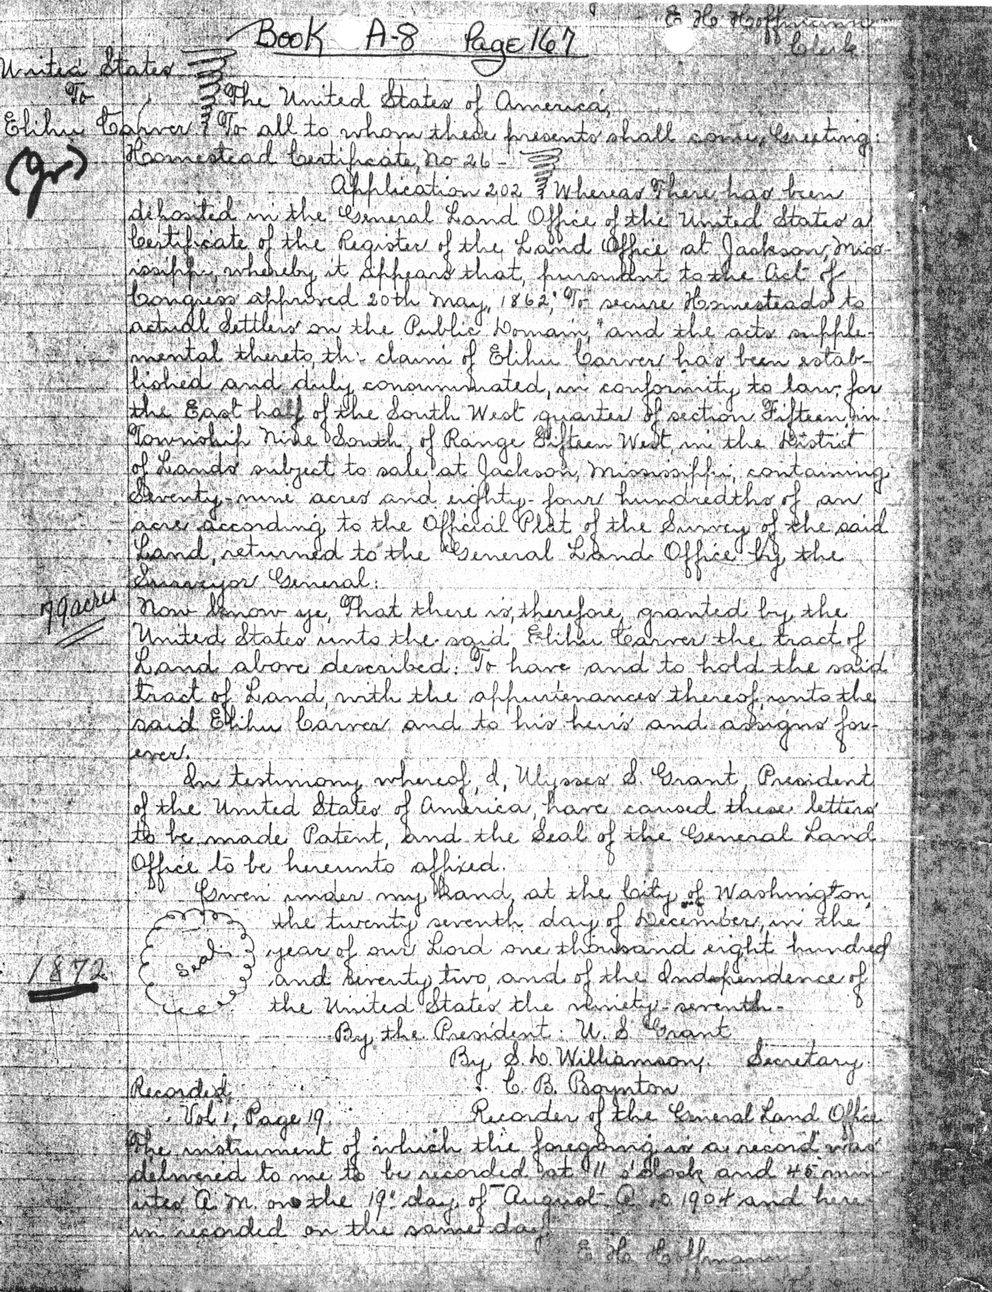 E H Hoffmann
Clerk
Book A-8 Page 167
United States
To
Elihu Carver
(Jr)
The United States of America,
To all to whom these presents shall come, Greeting:
Homestead Certificate, No 26 -
Application 202 Whereas There has been
deposited in the General Land Office of the United States a
Certificate of the Register of the Land Office at Jackson, Miss-
issippi, whereby it appears that, pursuant to the Act of
Congress approved 20th May, 1862, "To secure Homesteads to
actual Settlers on the Public Domain," and the acts supple-
mental thereto, th- claim of Elihu Carver has been estab-
lished and duly consummated, in conformity to law, for
the East half of the South West quarter of section Fifteen, in
Township Nine South, of Range Fifteen West, in the District
of Lands subject to sale at Jackson, Mississippi, containing
Seventy-nine acres and eighty-four hundredths of an
acre according to the Official Plat of the Survey of the said
Land, returned to the General Land Office by the
Surveyor General:
79 acres
Now know ye, That there is, therefore, granted by the
United States unto the said Elihu Carver the tract of
Land above described: To have and to hold the said
tract of Land, with the appurtenances thereof, unto the
said Elihu Carver and to his heirs and assigns for-
ever.
In testimony whereof, I, Ulysses S. Grant, President
of the United States of America, have caused these letters
to be made Patent, and the Seal of the General Land
Office to be hereunto affixed.
Given under my hand, at the City of Washington,
the twenty seventh day of December, in the
year of our Lord one thousand eight hundred
Seal
1872
and seventy two, and of the Independence of
the United States the ninety-seventh-
By the President: U. S Grant
By S. D. Williamson, Secretary.
Recorded, C. B. Boynton
Vol 1, Page 19. Recorder of the General Land Office
The instrument of which the foregoing is a record was
delivered to me to be recorded at 11 o'clock and 45 min-
utes A. M. on the 19" day of August A D 1904 and here-
in recorded on the same day.
E H Hoffmann